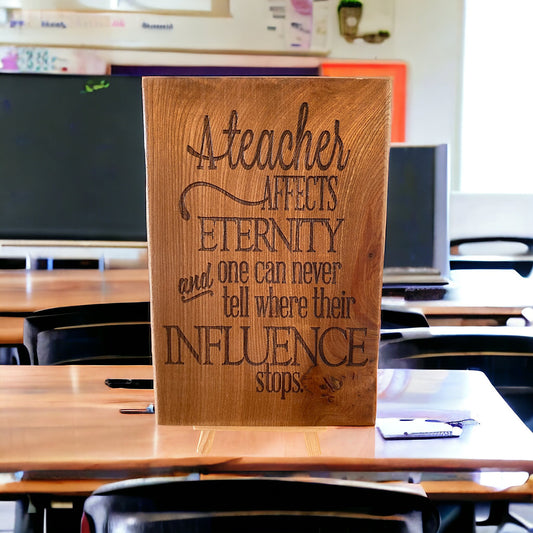 A teacher
AFFECTS
ETERNITY
and one can never
tell where their
INFLUENCE
stops.